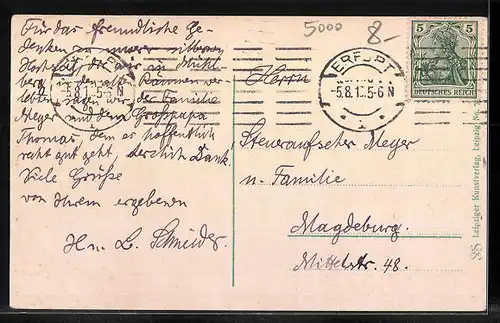 Für das freundliche Ge-
denken zu unserer silbernen
Hochzeit, die wir in Mühl-
berg in den alten Räumen ver-
lebten, sagen wir der Familie
Meyer und dem Großpapa
Thomas, dem es hoffentlich
recht gut geht, herzlich Dank.
Viele Grüße
von Ihrem ergebenen
Hn. L. Schneider.
5000
8-
ERFURT
5.8.1 5-6 N
5
5
DEUTSCHES REICH
Herrn
Steueraufseher Meyer
u. Familie
Magdeburg.
Mittelstr. 48.
88 Leipziger Kunstverlag, Leipzig